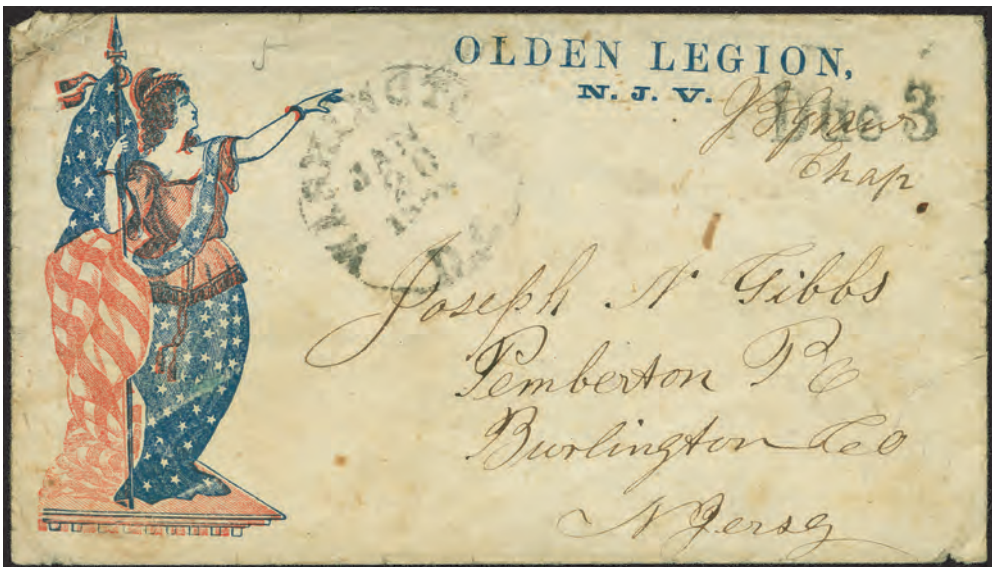 OLDEN LEGION,
N. J. V.
Due 3
Chap
WASHINGTON
JAN
20
Joseph N Gibbs
Pemberton PO
Burlington Co
N Jersey